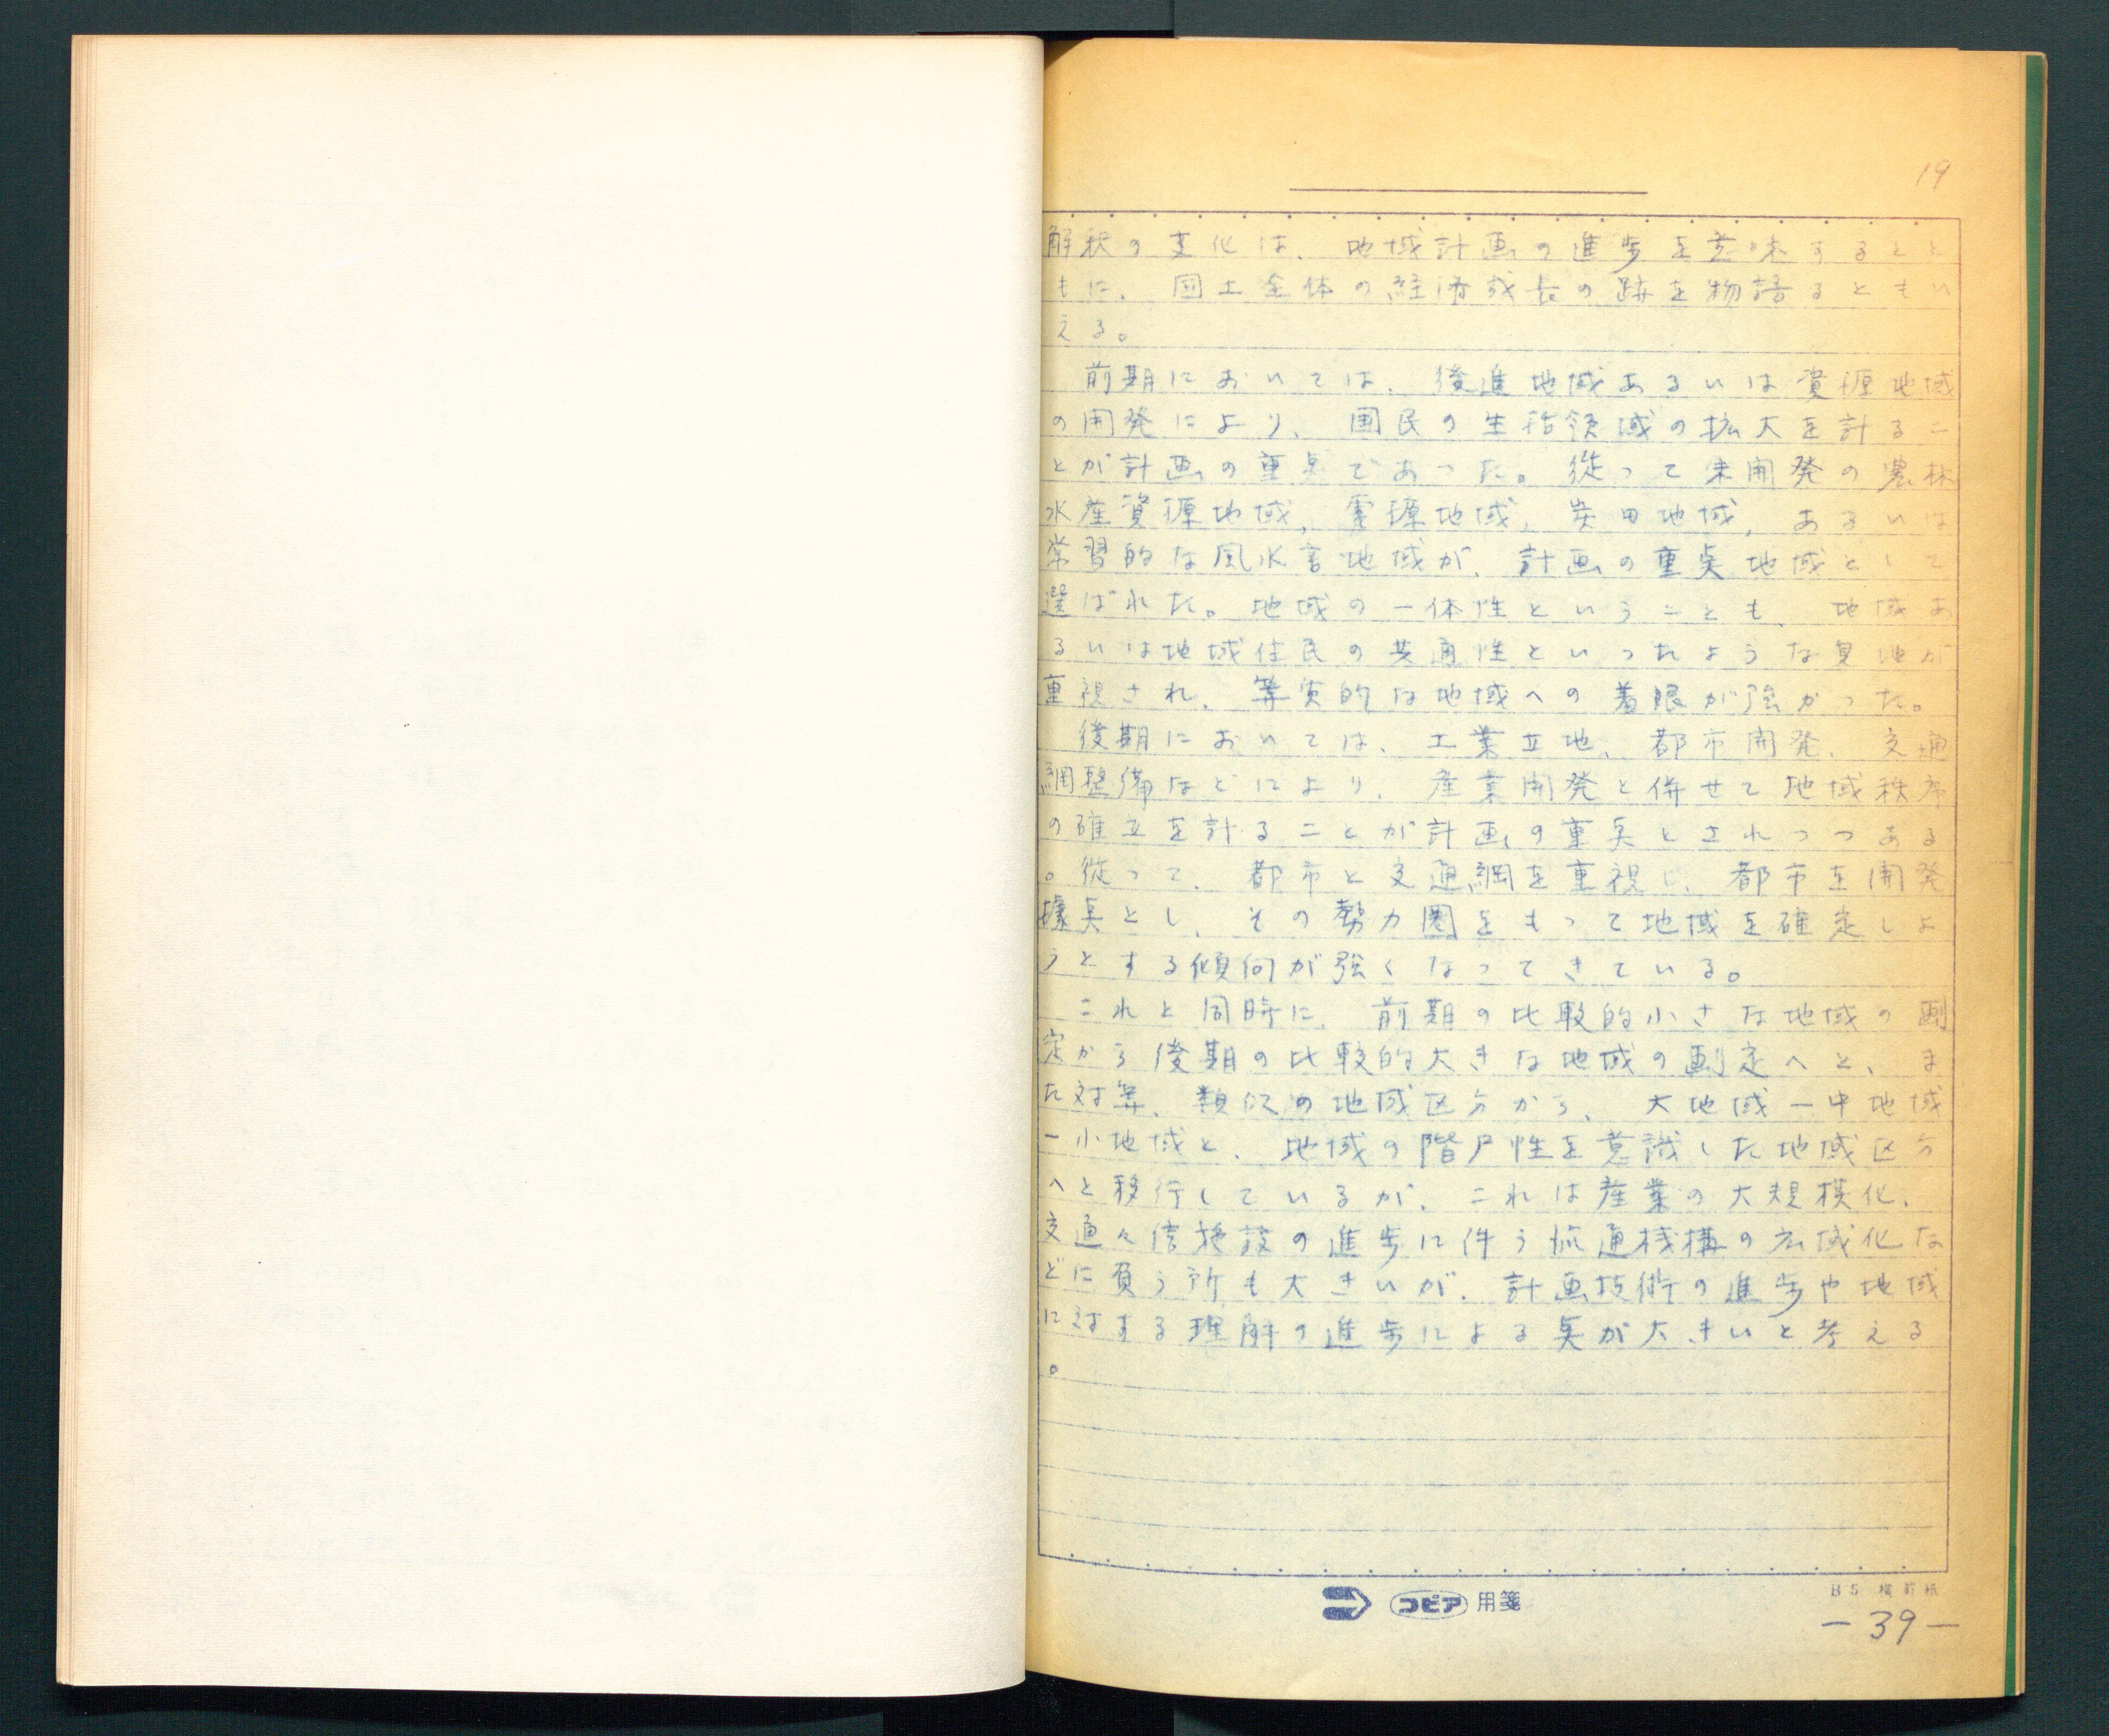 19
解釈の変化は、地域計画の進歩を意味するとと
もに、国土全体の経済成長の跡を物語るともい
える。
前期においては、後進地域あるいは資源地域
の開発により、国民の生活領域の拡大を計るこ
とが計画の重点であった。従って未開発の農林
水産資源地域，電源地域，炭田地域，あるいは
常習的な風水害地域が、計画の重点地域として
選ばれた。地域の一体性ということも、地域あ
るいは地域住民の共通性といったような見地が
重視され、等質的な地域への着眼が強かった。
後期においては、工業立地、都市開発、交通
網整備などにより、産業開発と併せて地域秩序
の確立を計ることが計画の重点とされつつある
。従って、都市と交通網を重視し、都市を開発
據点とし、その勢力圏をもって地域を確定しよ
うとする傾向が強くなってきている。
これと同時に、前期の比較的小さな地域の劃
定から後期の比較的大きな地域の劃定へと、ま
た対等、類似の地域区分から、大地域―中地域
―小地域と、地域の階戸性を意識した地域区分
へと移行しているが、これは産業の大規模化、
交通々信施設の進歩に伴う流通機構の広域化な
どに負う所も大きいが、計画技術の進歩や地域
に対する理解の進歩による点が大きいと考える
。
コピア 用箋
B5 横罫紙
－39－